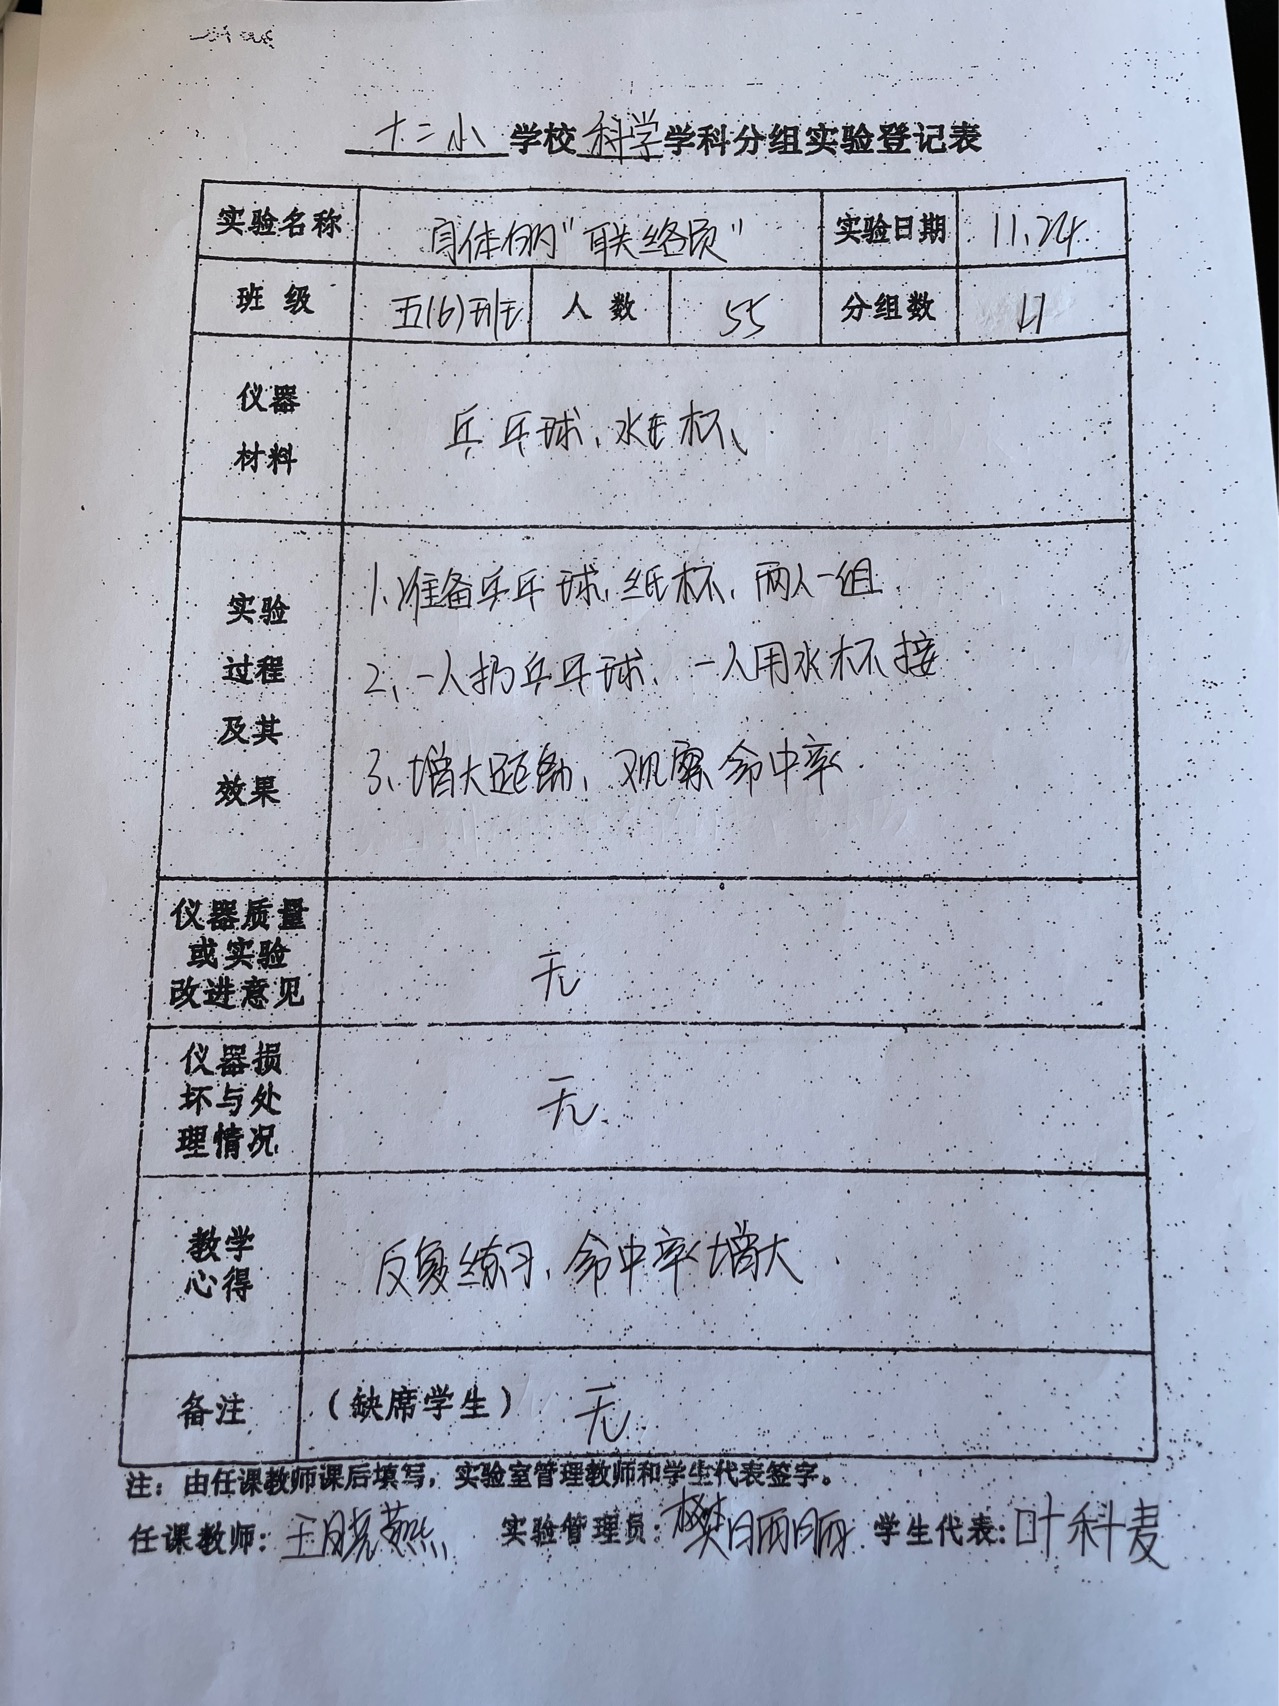 十二小 学校 科学 学科分组实验登记表
实验名称 身体的“联络员” 实验日期 11.24
班 级 五(6)班 人 数 55 分组数 11
仪器
材料
乒乓球、水杯、
实验
过程
及其
效果
1、准备乒乓球、纸杯、两人一组
2、一人扔乒乓球、一人用水杯接
3、增大距离、观察命中率
仪器质量
或实验
改进意见
无
仪器损
坏与处
理情况
无.
教学
心得
反复练习、命中率增大.
备注 (缺席学生) 无.
注：由任课教师课后填写，实验室管理教师和学生代表签字。
任课教师：王晓燕 实验管理员：樊丽丽 学生代表：叶科麦